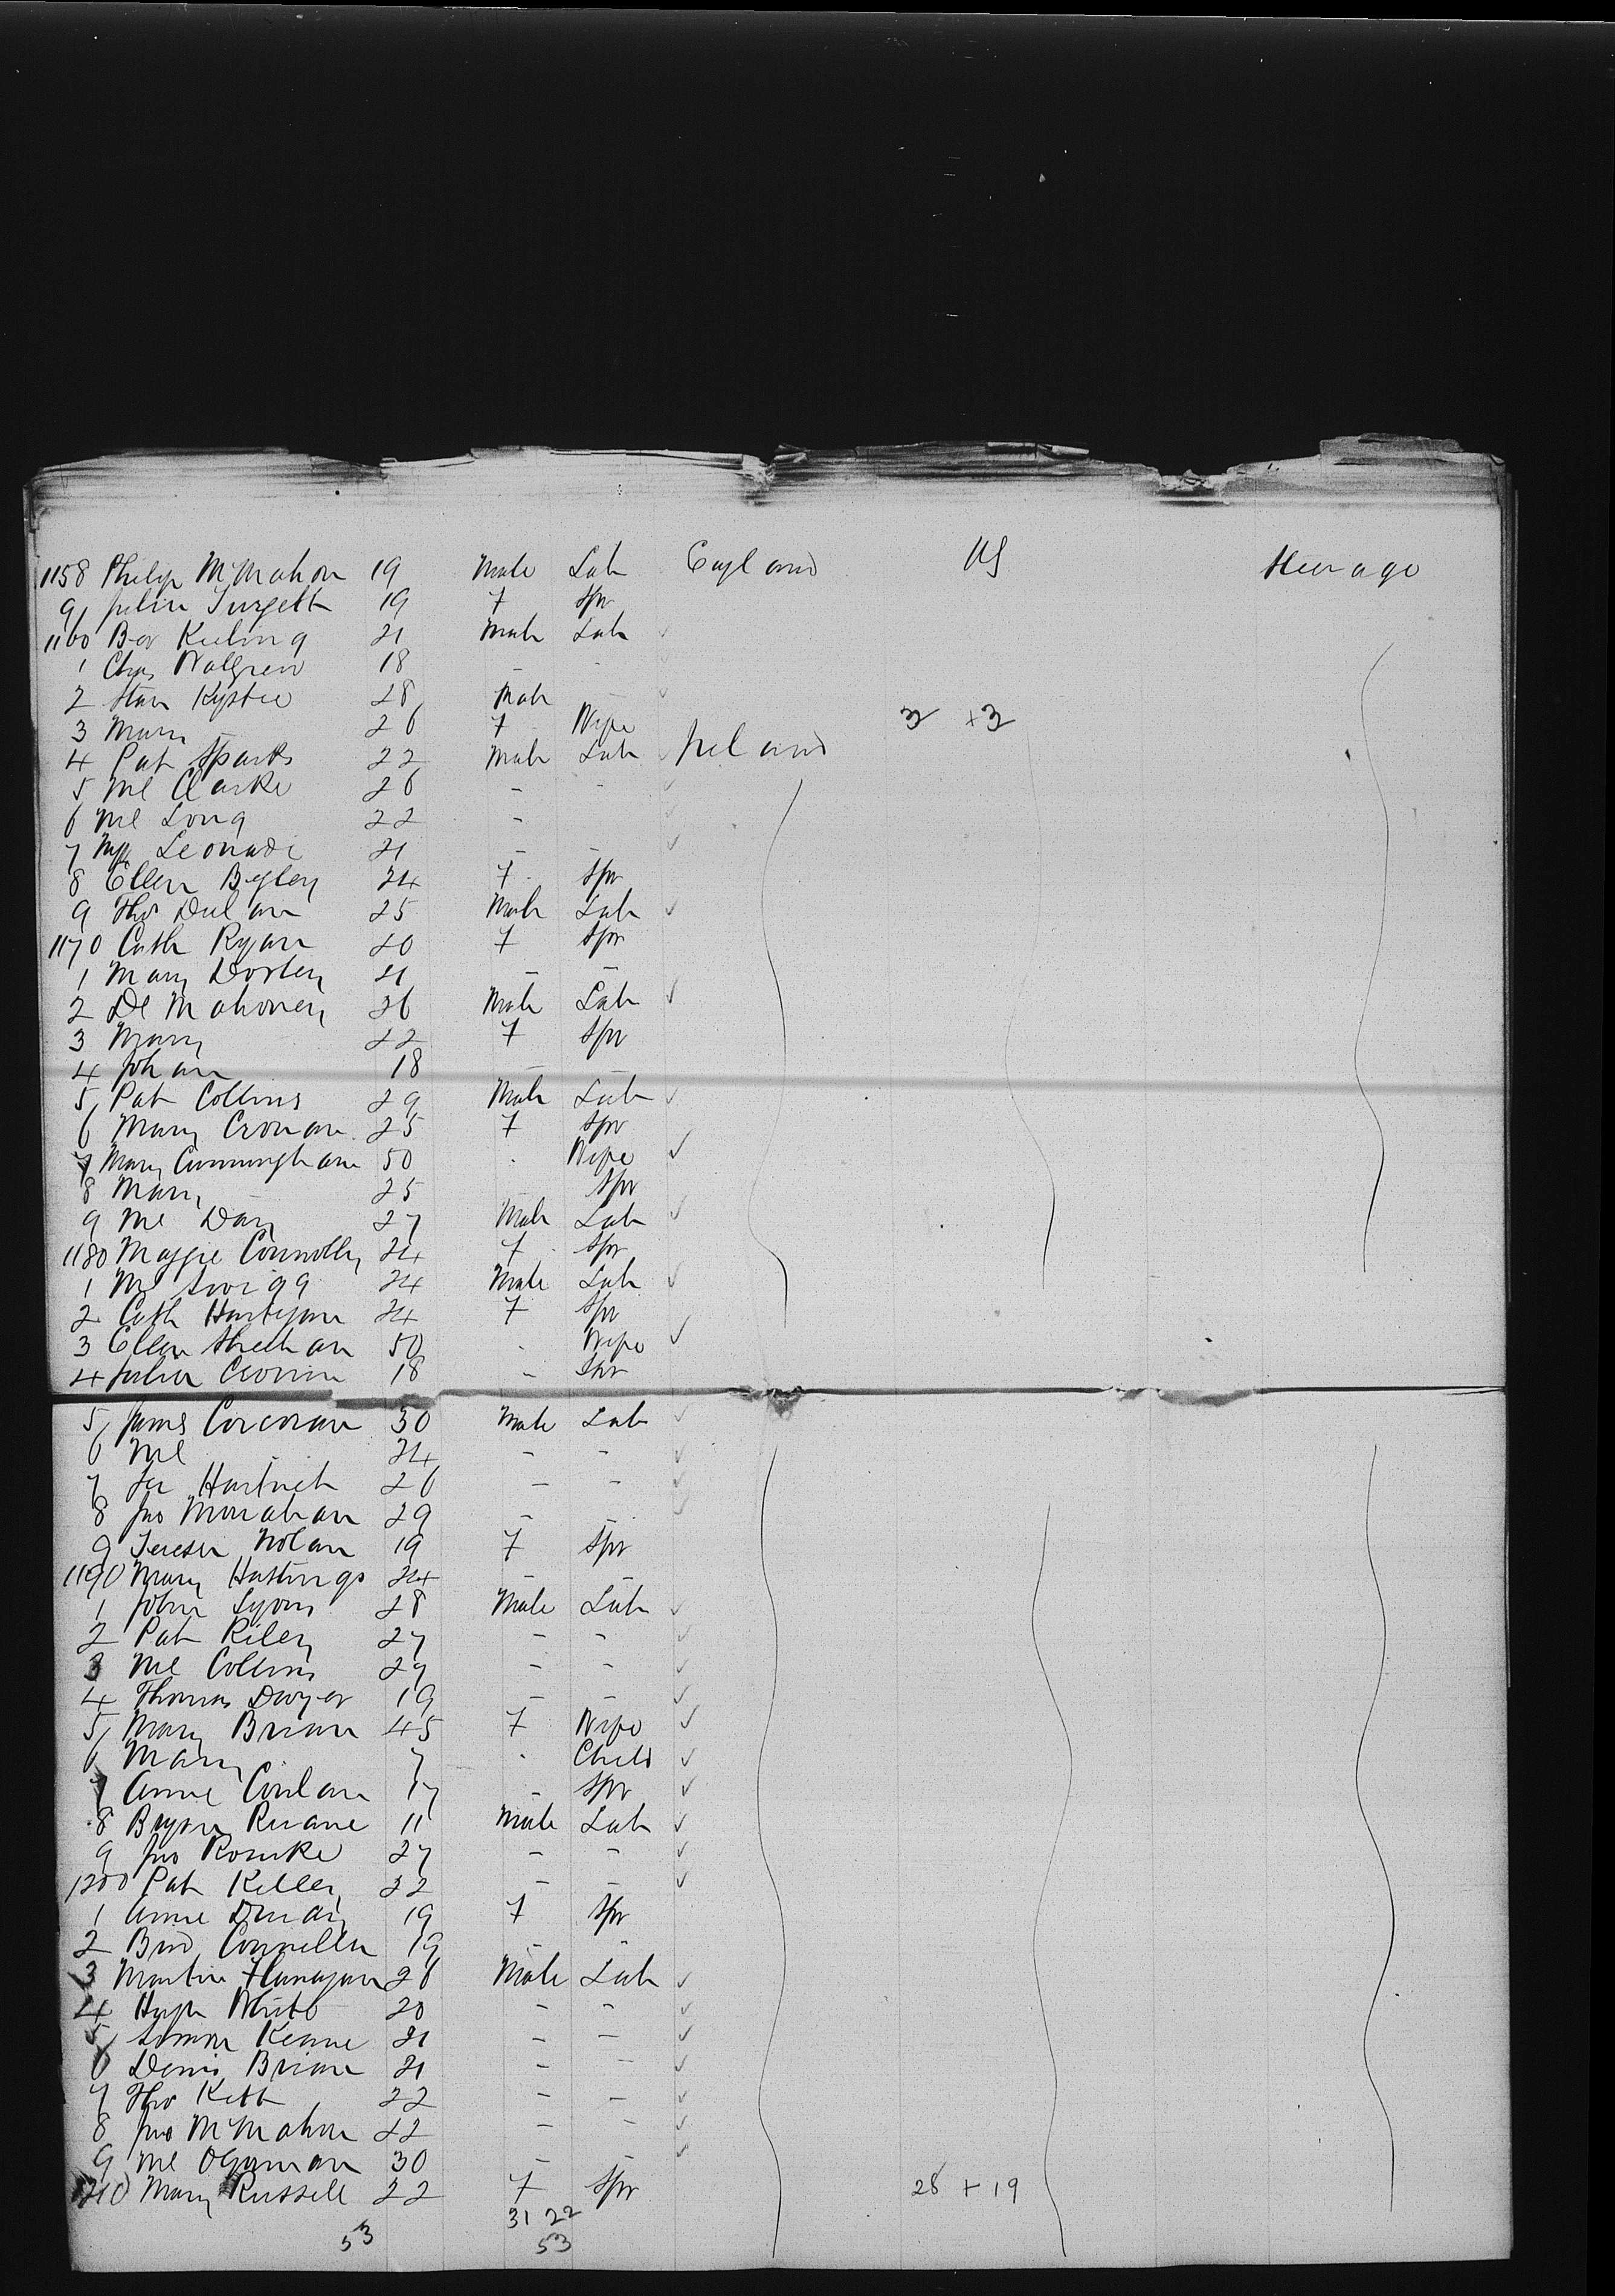 1158 Philip McMahon 19 Male Lab England US Steerage
9 Julia Turgett 19 F Spr
1160 Ber Keeling 21 Male Lab
1 Chas Walgren 18 - -
2 Stan 28 Male -
3 Mary - 26 F Wife 3 + 3
4 Pat Sparks 22 Male Lab Ireland
5 Ml Clarke 26 - -
6 Ml Long 22 -
7 Leonard 21 - -
8 Ellen Begley 24 F Spr
9 Thos Dulan 25 Male Lab
1170 Cath Ryan 20 F Spr
1 Mary Dorley 21 - -
2 Dl Mahoney 26 Male Lab
3 Mary 22 F Spr
4 Johan 18 - -
5 Pat Collins 29 Male Lab
6 Mary Cronan 25 F Spr
7 Mary Cunningham 50 Wife
8 Mary 25 Spr
9 Ml Day 27 Male Lab
1180 Maggie Connolly 24 F Spr
1 Ml 24 Male Lab
2 Cath Hartigan 24 F Spr
3 Ellen Sheehan 50 Wife
4 Julia Cronin 18 - Spr
5 James Corcoran 30 Male Lab
6 Ml 24 - -
7 Jer Hartnett 26 - -
8 Jno Monahan 29 - -
9 Teresa Nolan 19 F Spr
1190 Mary Hastings 24 - -
1 John Lyons 28 Male Lab
2 Pat Riley 27 - -
3 Ml Collins 27 - -
4 Thomas Dwyer 19 - -
5 Mary Brian 45 F Wife
6 Mary 7 Child
7 Annie Conlan 17 - Spr
8 Bryan Ruane 11 Male Lab
9 Jno Rourke 27 - -
1200 Pat Kelley 22 - -
1 Annie 19 F Spr
2 Brid Connella 19 - -
3 Martin Flanagan 26 Male Lab
4 Hugh White 20 - -
5 Simon Keane 21 - -
6 Denis Brian 21 - -
7 Thos Kett 22 - -
8 Jno McMahon 22 - -
9 Ml OGorman 30 - -
1210 Mary Russell 22 F Spr 28 + 19
31 22
53 53